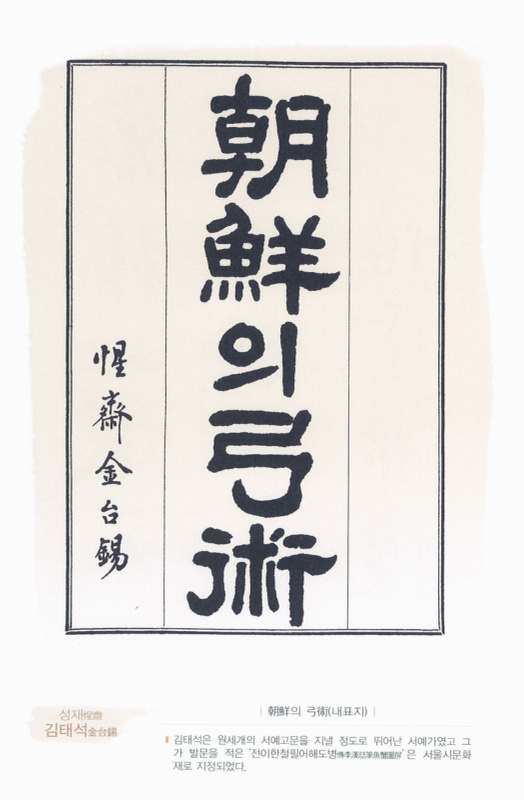 朝鮮의弓術
惺齋金台錫
성재惺齋
김태석金台錫
朝鮮의 弓術(내표지)
김태석은 원세개의 서예고문을 지낼 정도로 뛰어난 서예가였고 그
가 발문을 적은 '전이한철필어해도병傳李漢喆筆魚蟹圖屛'은 서울시문화
재로 지정되었다.